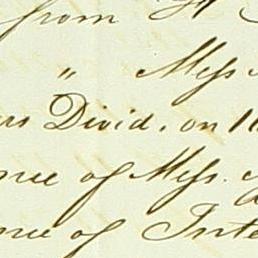 from
" Mess
Divid. on 11
of Mess.
of Inte